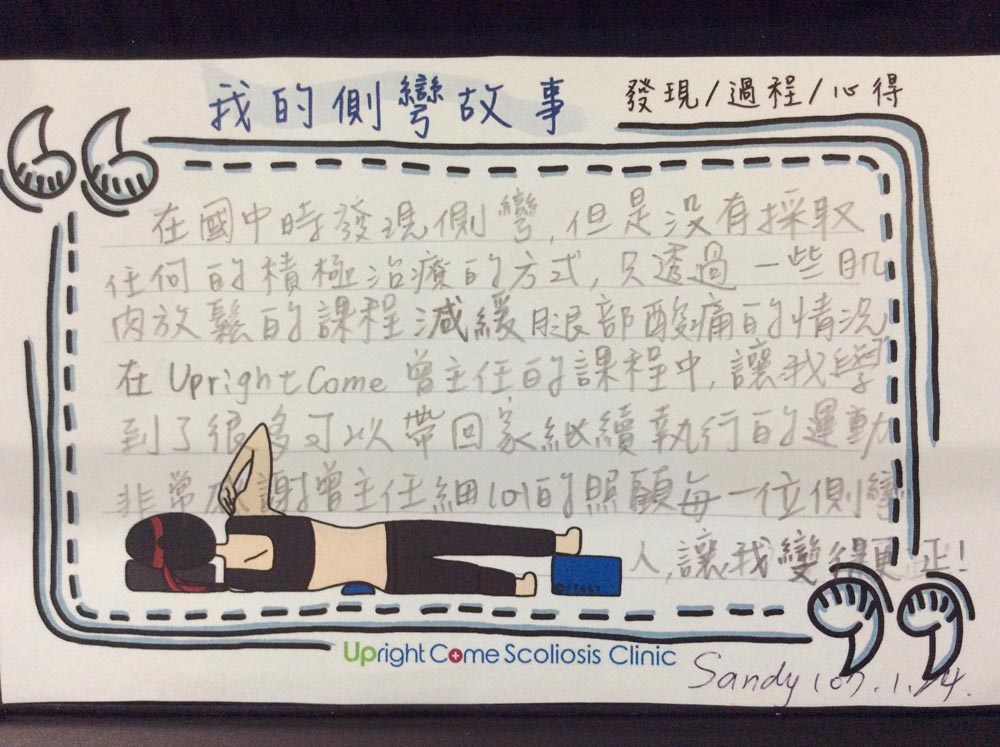 我的側彎故事 發現/過程/心得
在國中時發現側彎,但是沒有採取
任何的積極治療的方式,只透過一些肌
肉放鬆的課程減緩腿部酸痛的情況
在 Upright Come 曾主任的課程中,讓我學
到了很多可以帶回家繼續執行的運動
非常感謝曾主任細心的照顧每一位側彎
人,讓我變得更正!
Upright Come Scoliosis Clinic
Sandy 107.1.24.